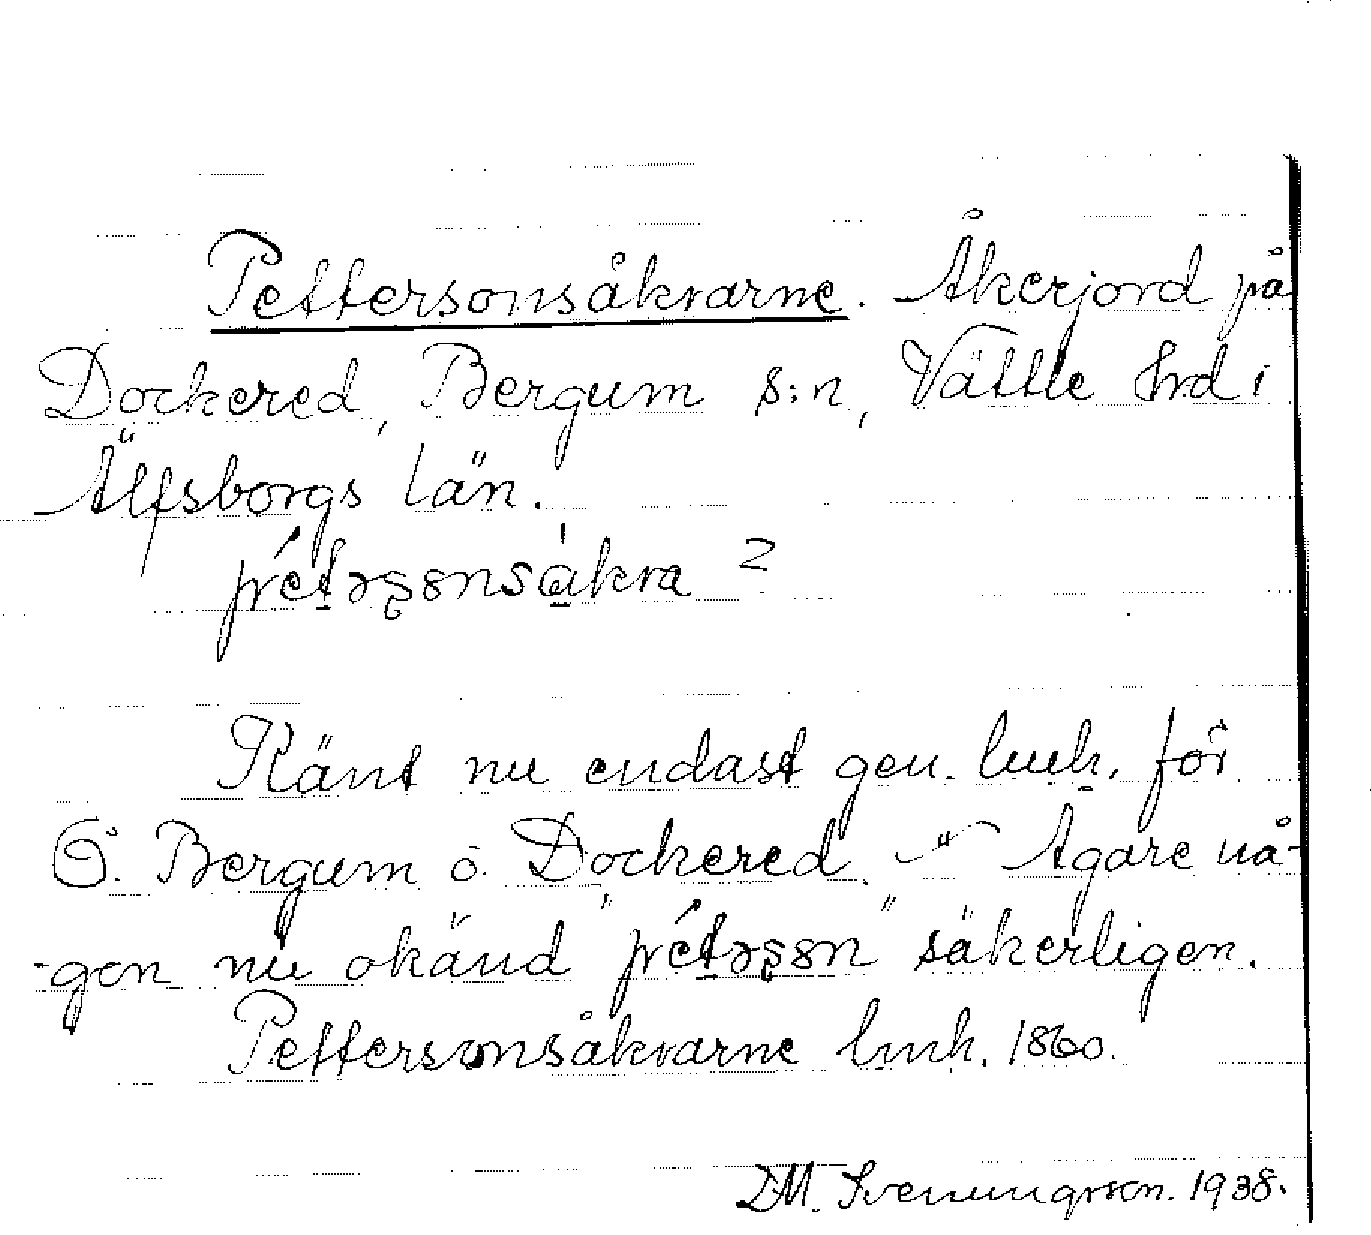 Pettersonsåkrarne. Åkerjord på
Dockered, Bergum s:n, Vättle hrd i
Älfsborgs län.
pét̠ərsonsákra 2
Känt nu endast gen. lmk. för
Ö. Bergum o. Dockered. Ägare nå-
-gon nu okänd "pét̠ərson" säkerligen.
Pettersonsåkrarne lmk. 1860.
DM. Svenungsson. 1938.